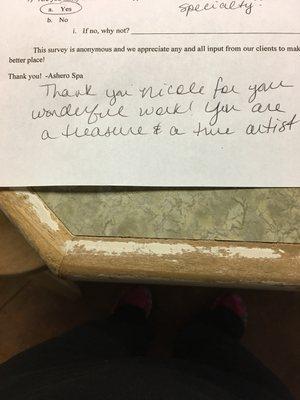 a. Yes
specialty!
b. No
i. If no, why not?
This survey is anonymous and we appreciate any and all input from our clients to mak
better place!
Thank you! -Ashero Spa
Thank you Nicole for your
wonderful work! You are
a treasure & a true artist